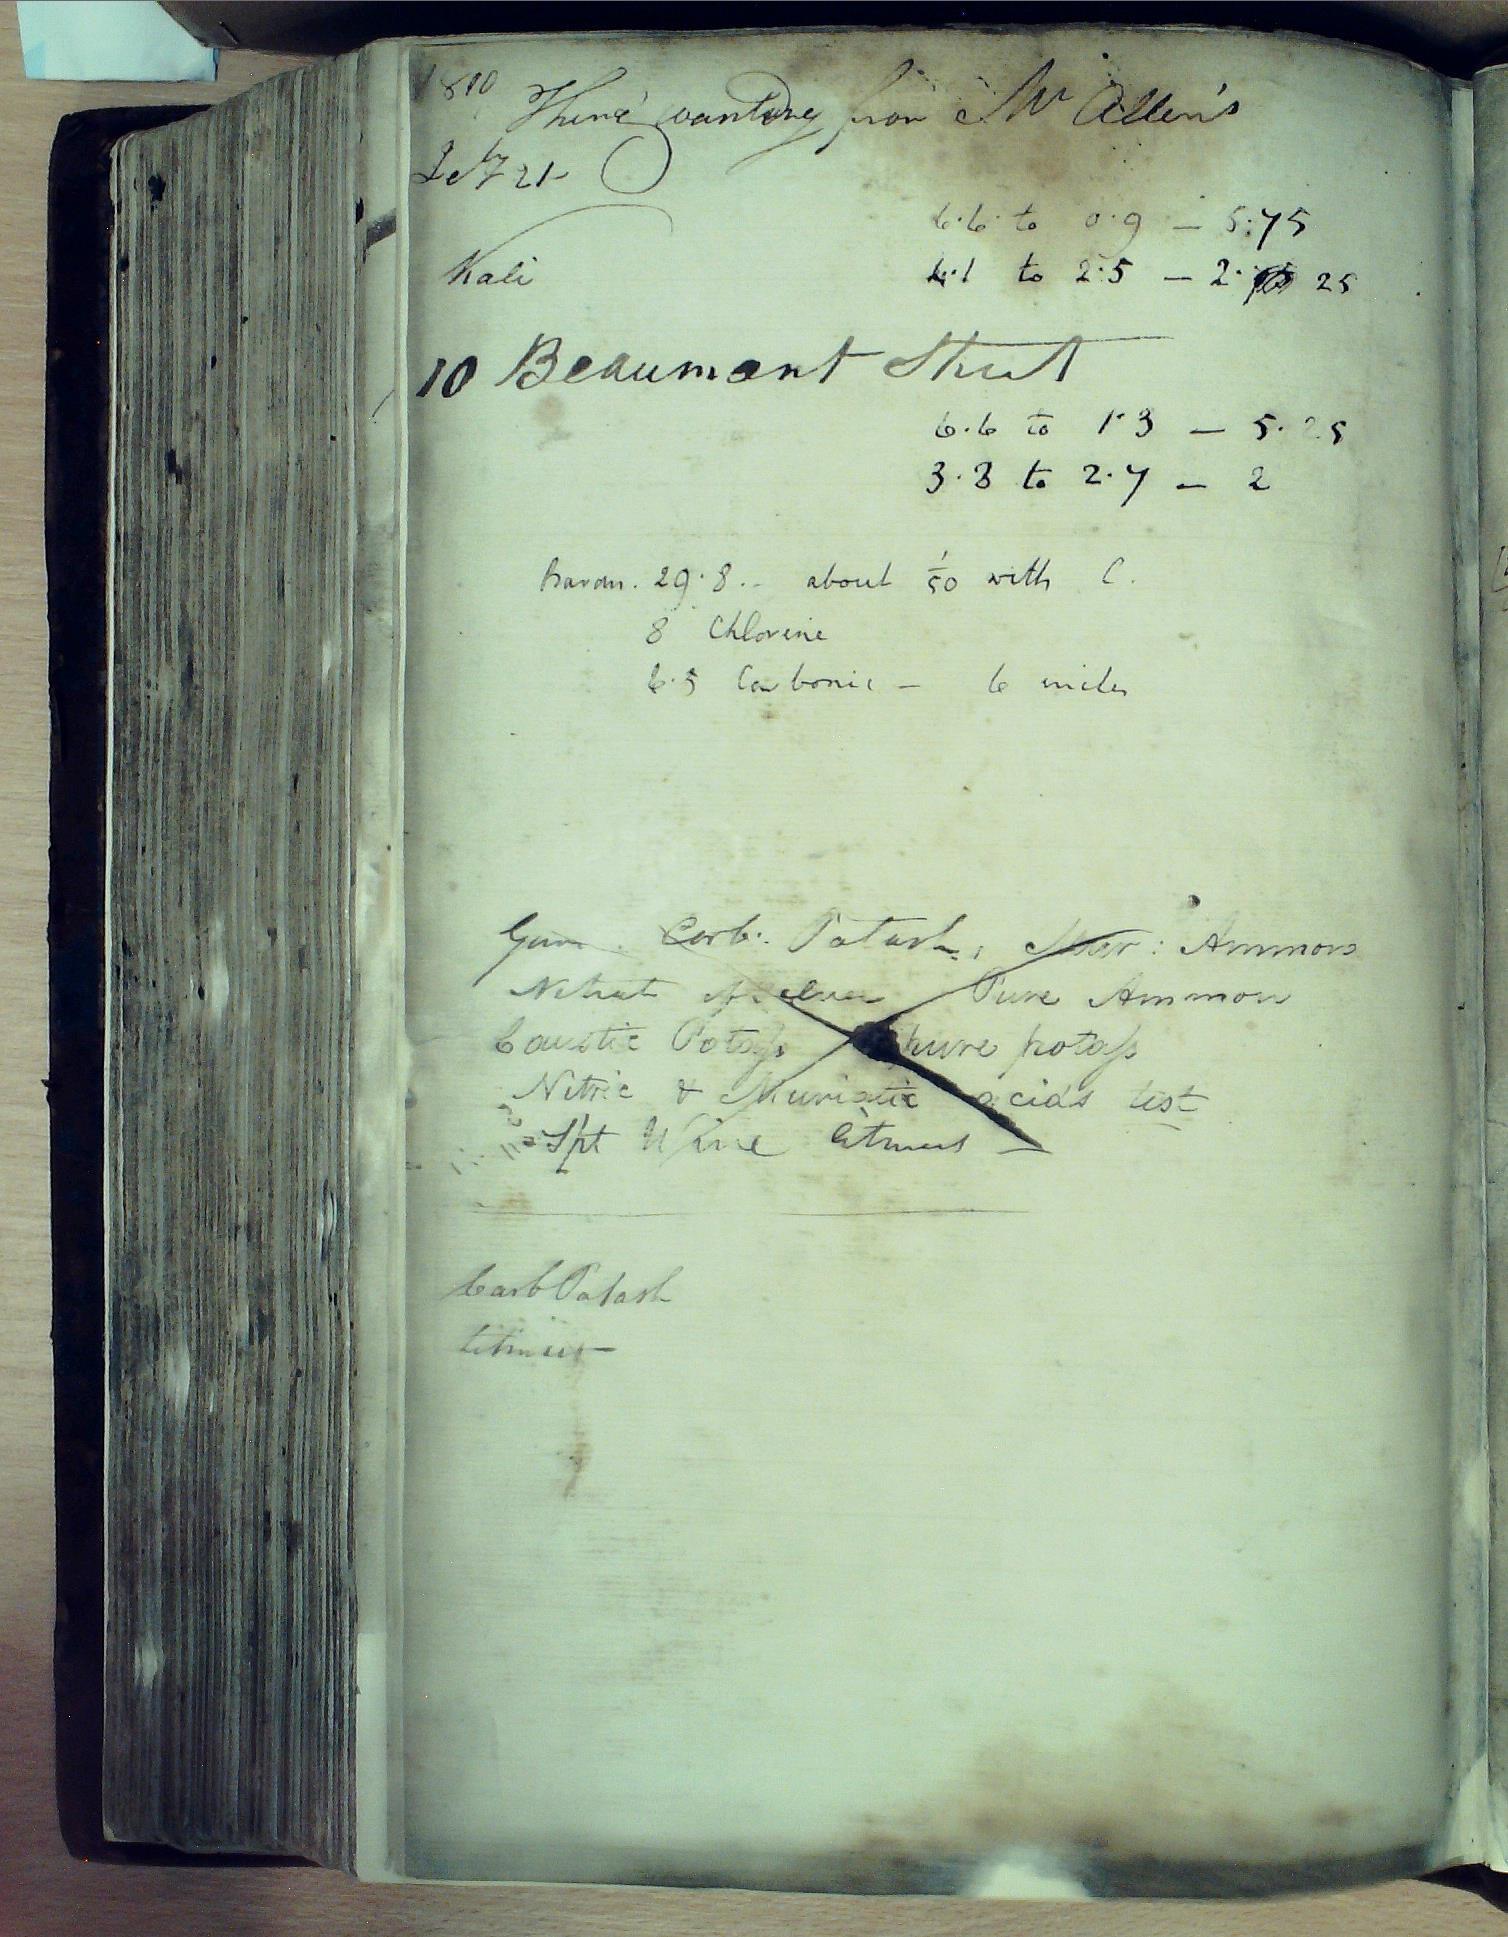 1810 wanting from Mr Allen's
21
6.6 to 0.9 — 5.75
Kali
4.1 to 2.5 — 2. 25
10 Beaumont Street
6.6 to 1.3 — 5.25
3.8 to 2.7 — 2
Barom. 29.8.- about 1/50 with C.
8 Chlorine
6.5 Carbonic — 6 inches
Carb: Potash, Mur: Ammon
Nitrat of silver Pure Ammon
Caustic Potass pure potass
Nitric & Muriatic acids test
Spt Wine litmus —
Carb Potash
litmus —